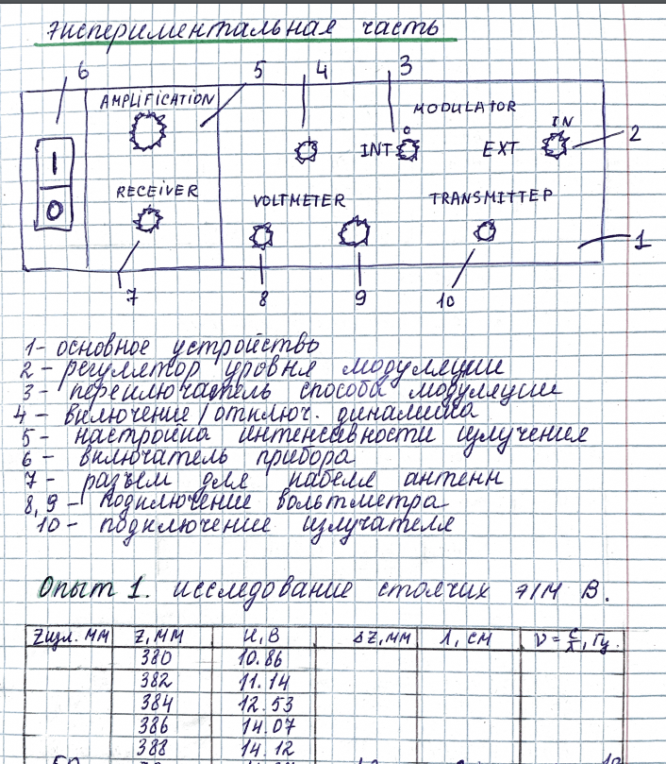 Экспериментальная часть
6 5 4 3
AMPLIFICATION MODULATOR
IN
I INT 0 EXT 2
0 RECEIVER VOLTMETER TRANSMITTEP
1
7 8 9 10
1- основное устройство
2- регулятор уровня модуляции
3- переключатель способа модуляции
4- включение/отключ. динамика
5- настройка интенсивности излучения
6- включатель прибора
7- разъем для кабеля антенн
8,9- подключение вольтметра
10- подключение излучателя
Опыт 1. исследование стоячих э/м в.
Zизл. мм Z, мм U, В ΔZ, мм λ, см ν=c/λ, Гц.
380 10.86
382 11.14
384 12.53
386 14.07
388 14.12